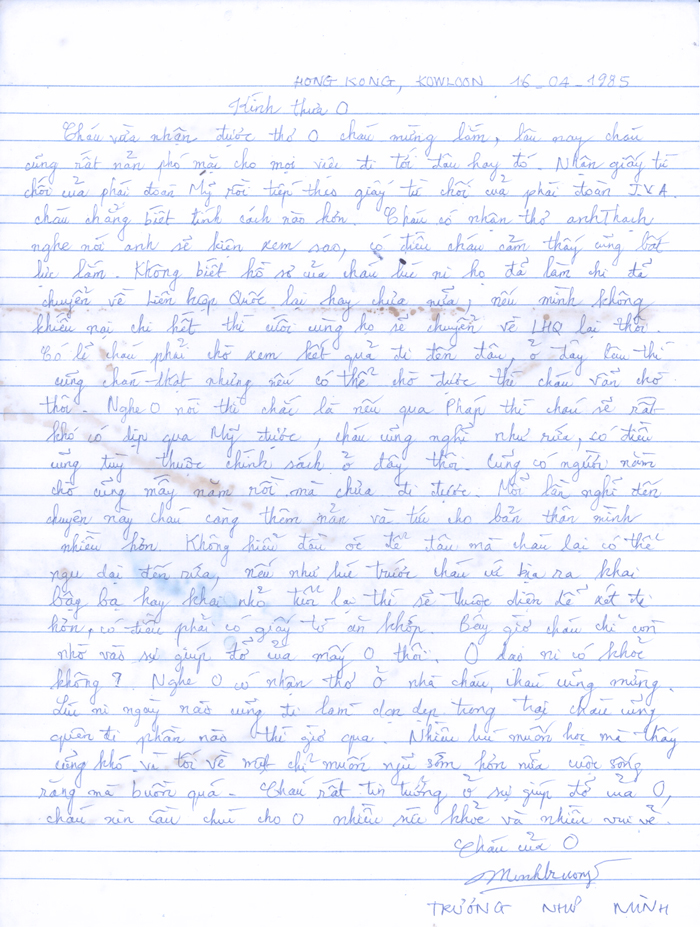 HONG KONG, KOWLOON 16_04_1985
Kính thưa O
Cháu vừa nhận được thơ O cháu mừng lắm, lâu nay cháu
cũng rất nản phó mặc cho mọi viêc đi tới đâu hay đó. Nhận giấy từ
chối của phái đoàn Mỹ rồi tiếp theo giấy từ chối của phái đoàn JVA.
cháu chẳng biết tính cách nào hơn. Cháu có nhận thơ anh Thạch
nghe nói anh sẽ kiện xem sao, có điều cháu cảm thấy cũng bất
lực lắm. Không biết hồ sơ của cháu lúc ni họ đã làm chi để
chuyển về Liên hợp Quốc lại hay chưa nữa, nếu mình không
khiếu nại chi hết thì cuối cùng họ sẽ chuyển về LHQ lại thôi.
Có lẽ cháu phải chờ xem kết quả đi đến đâu, ở đây lâu thì
cũng chán thật nhưng nếu có thể chờ được thì cháu vẫn chờ
thôi. Nghe O nói thì chắc là nếu qua Pháp thì cháu sẽ rất
khó có dịp qua Mỹ được, cháu cũng nghĩ như rứa, có điều
cũng tuỳ thuộc chính sách ở đây thôi. Cũng có người nằm
chờ cũng mấy năm rồi mà chưa đi được. Mỗi lần nghĩ đến
chuyện này cháu càng thêm mắn và tức cho bản thân mình
nhiều hơn. Không hiểu đầu óc để đâu mà cháu lại có thể
ngu dại đến rứa, nếu như lúc trước cháu cứ bịa ra khai
bậy bạ hay khai nhỏ tuổi lại thì sẽ thuộc diện dể xét đi
hơn, có điều phải có giấy tờ ăn khớp. Bây giờ cháu chỉ còn
nhờ vào sự giúp đở của mấy O thôi. O dạo ni có khoẻ
không? Nghe O có nhận thơ ở nhà cháu, cháu cũng mừng.
Lúc ni ngày nào cũng đi làm dọn dẹp trong trại cháu cũng
quên đi phần nào thì giờ qua. Nhiều lúc muốn học mà thấy
cũng khó và tối về mệt chỉ muốn ngủ sớm hơn nữa cuộc sống
răng mà buồn quá. Cháu rất tin tưởng ở sự giúp đở của O,
cháu xin cầu chúc cho O nhiều sức khoẻ và nhiều vui vẻ.
Cháu của O
Minhtruong
TRƯƠNG NHƯ MINH